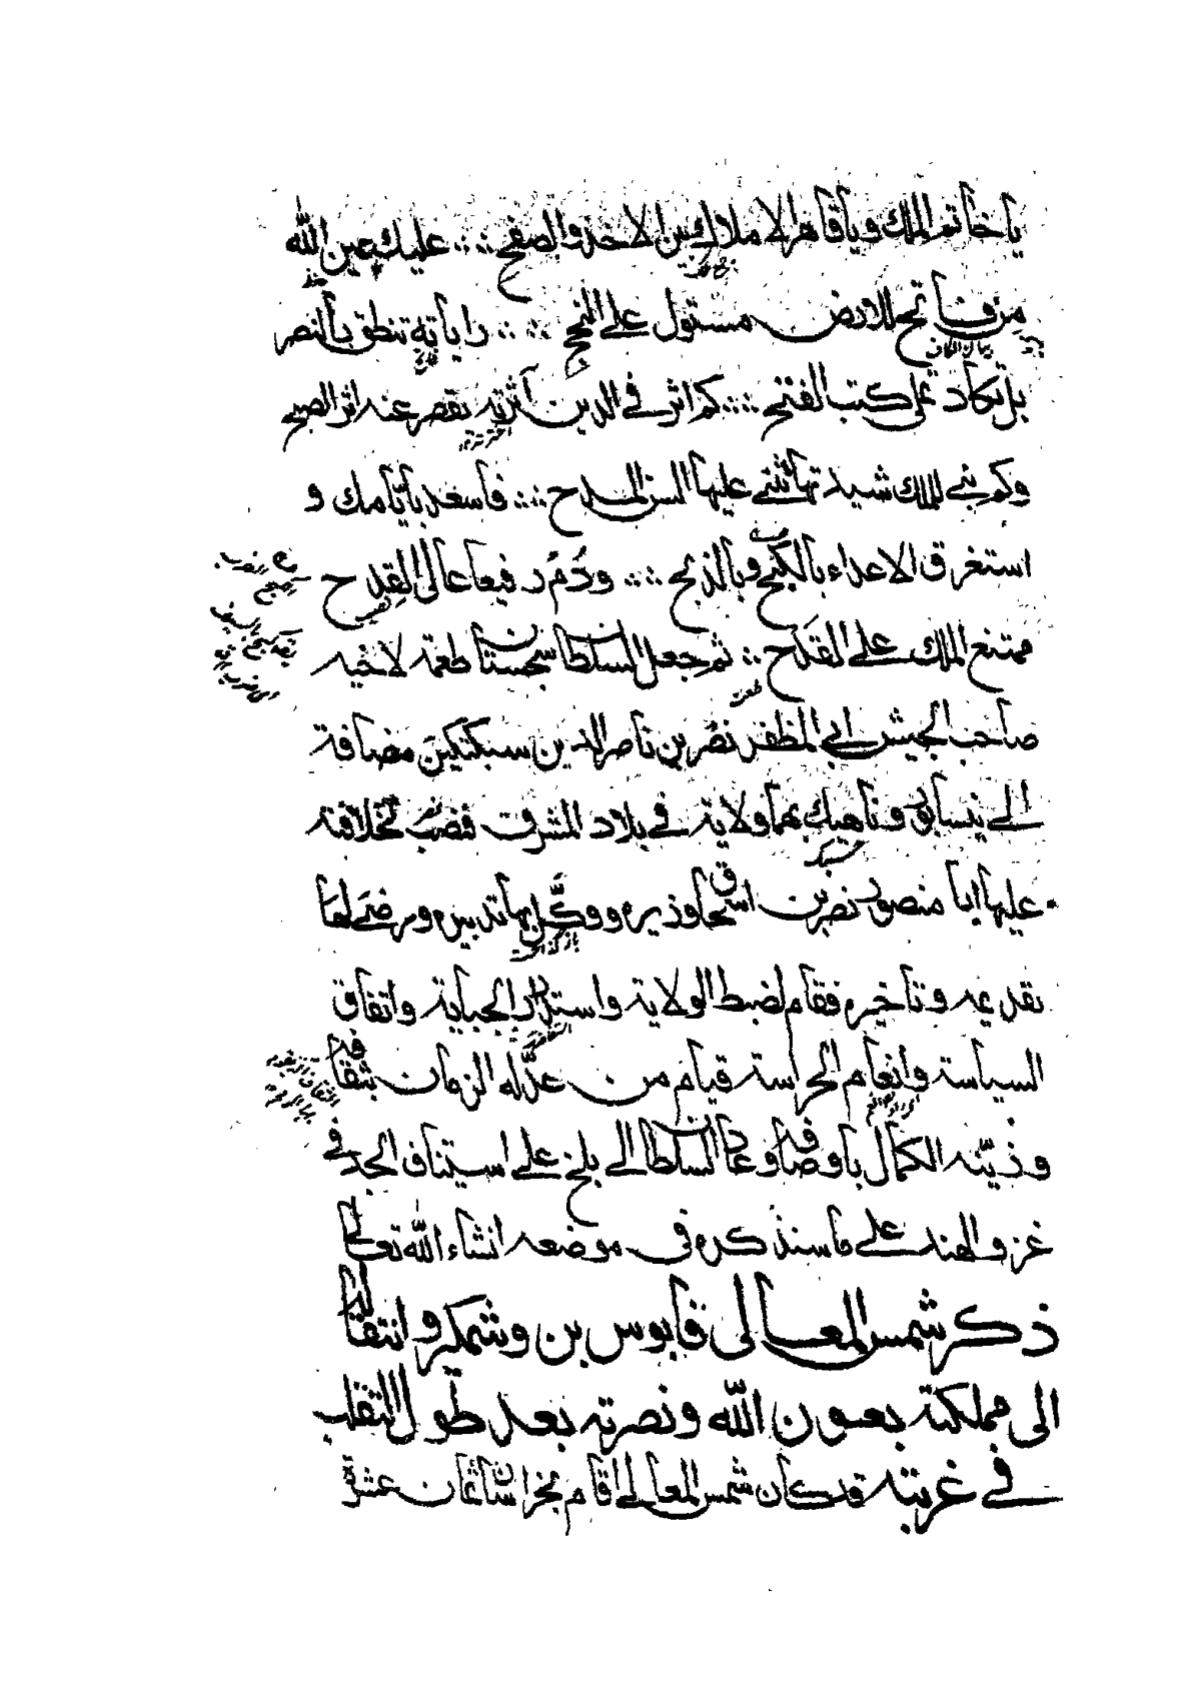 يا خاتم الملك ويا قاهر الاملاك بين الاخذ والصفح ∴ عليك عين الله
من فاتح للارض مستول على النجح ∴ راياته تنطق بالنصر
بل تكاد تملى كتب الفتح ∴ كم اثر في الدين اثرته يقصر عنه اثر الصبح
وكم بنى للملك شيدتها تثنى عليها السن المدح ∴ فاسعد بايامك و
استغرق الاعداء بالكبح وبالذبح ∴ ودُم رفيعا عالى القِدح
ممتنع الملك على القَدح ∴ ثم جعل السلطان سجستان طعمة لاخيه
صاحب الجيش ابي المظفر نصر بن ناصر الدين سبكتكين مضافة
الى نيسابور وناهيك بهما ولاية في بلاد المشرق فنصب لخلافته
عليها ابا منصور نصر بن اسحاق وزيره ووكّل بها تدبيره ورضى لها
تقديمه وتاخيره فقام لضبط الولاية واستدرار الجباية واتفاق
السياسة وانعام الحراسة قيام من عدّله الزمان بثقافه
وزيّنه الكمال باوصافه وعاد السلطان الى بلخ على استيناف الجد في
غزو الهند على ما سنذكره في موضعه انشاء الله تعالى
ذكر شمس المعالى قابوس بن وشمكير وانتقاله
الى مملكته بعون الله ونصرته بعد طول التقلب
في غربته قد كان شمس المعالى اقام بخراسان ثمان عشرة